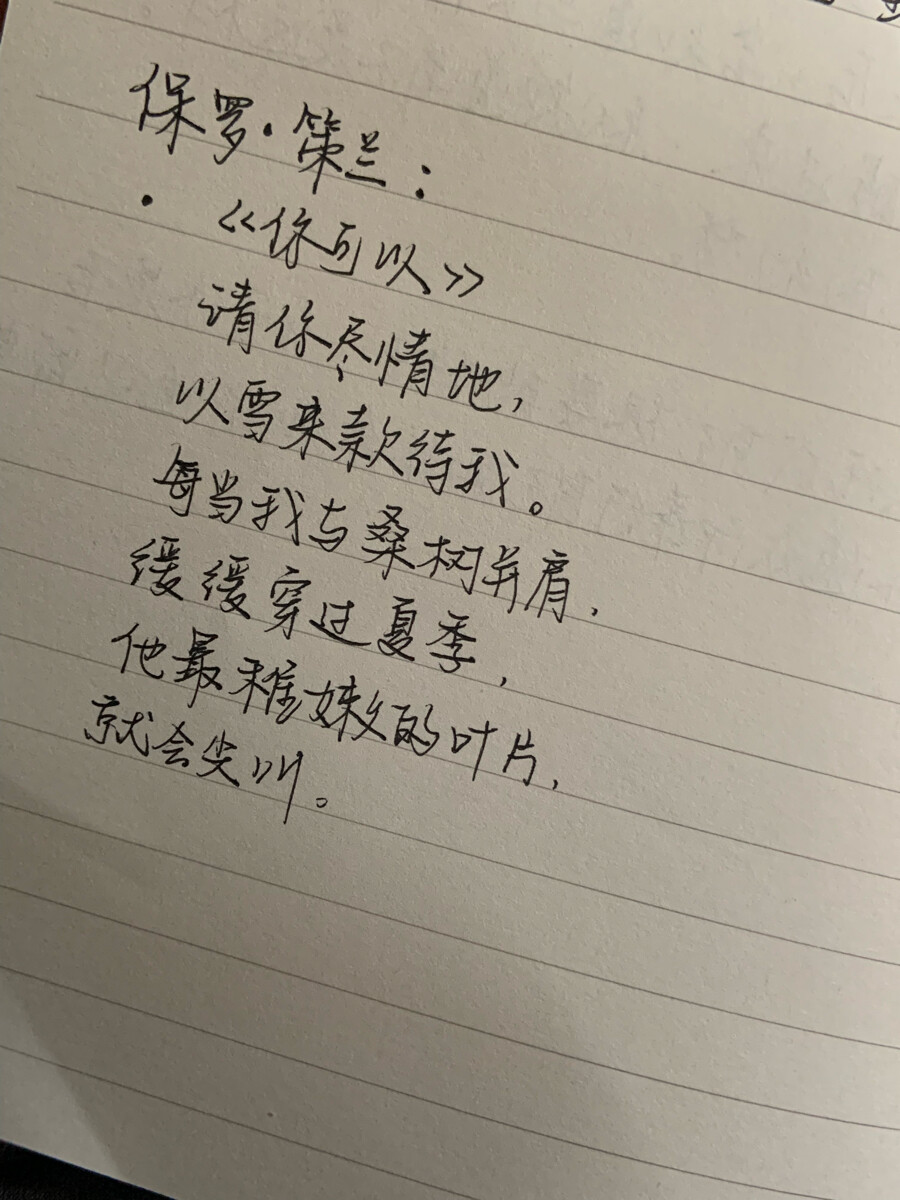 保罗·策兰：
· 《你可以》
请你尽情地，
以雪来款待我。
每当我与桑树并肩，
缓缓穿过夏季，
他最稚嫩的叶片，
就会尖叫。